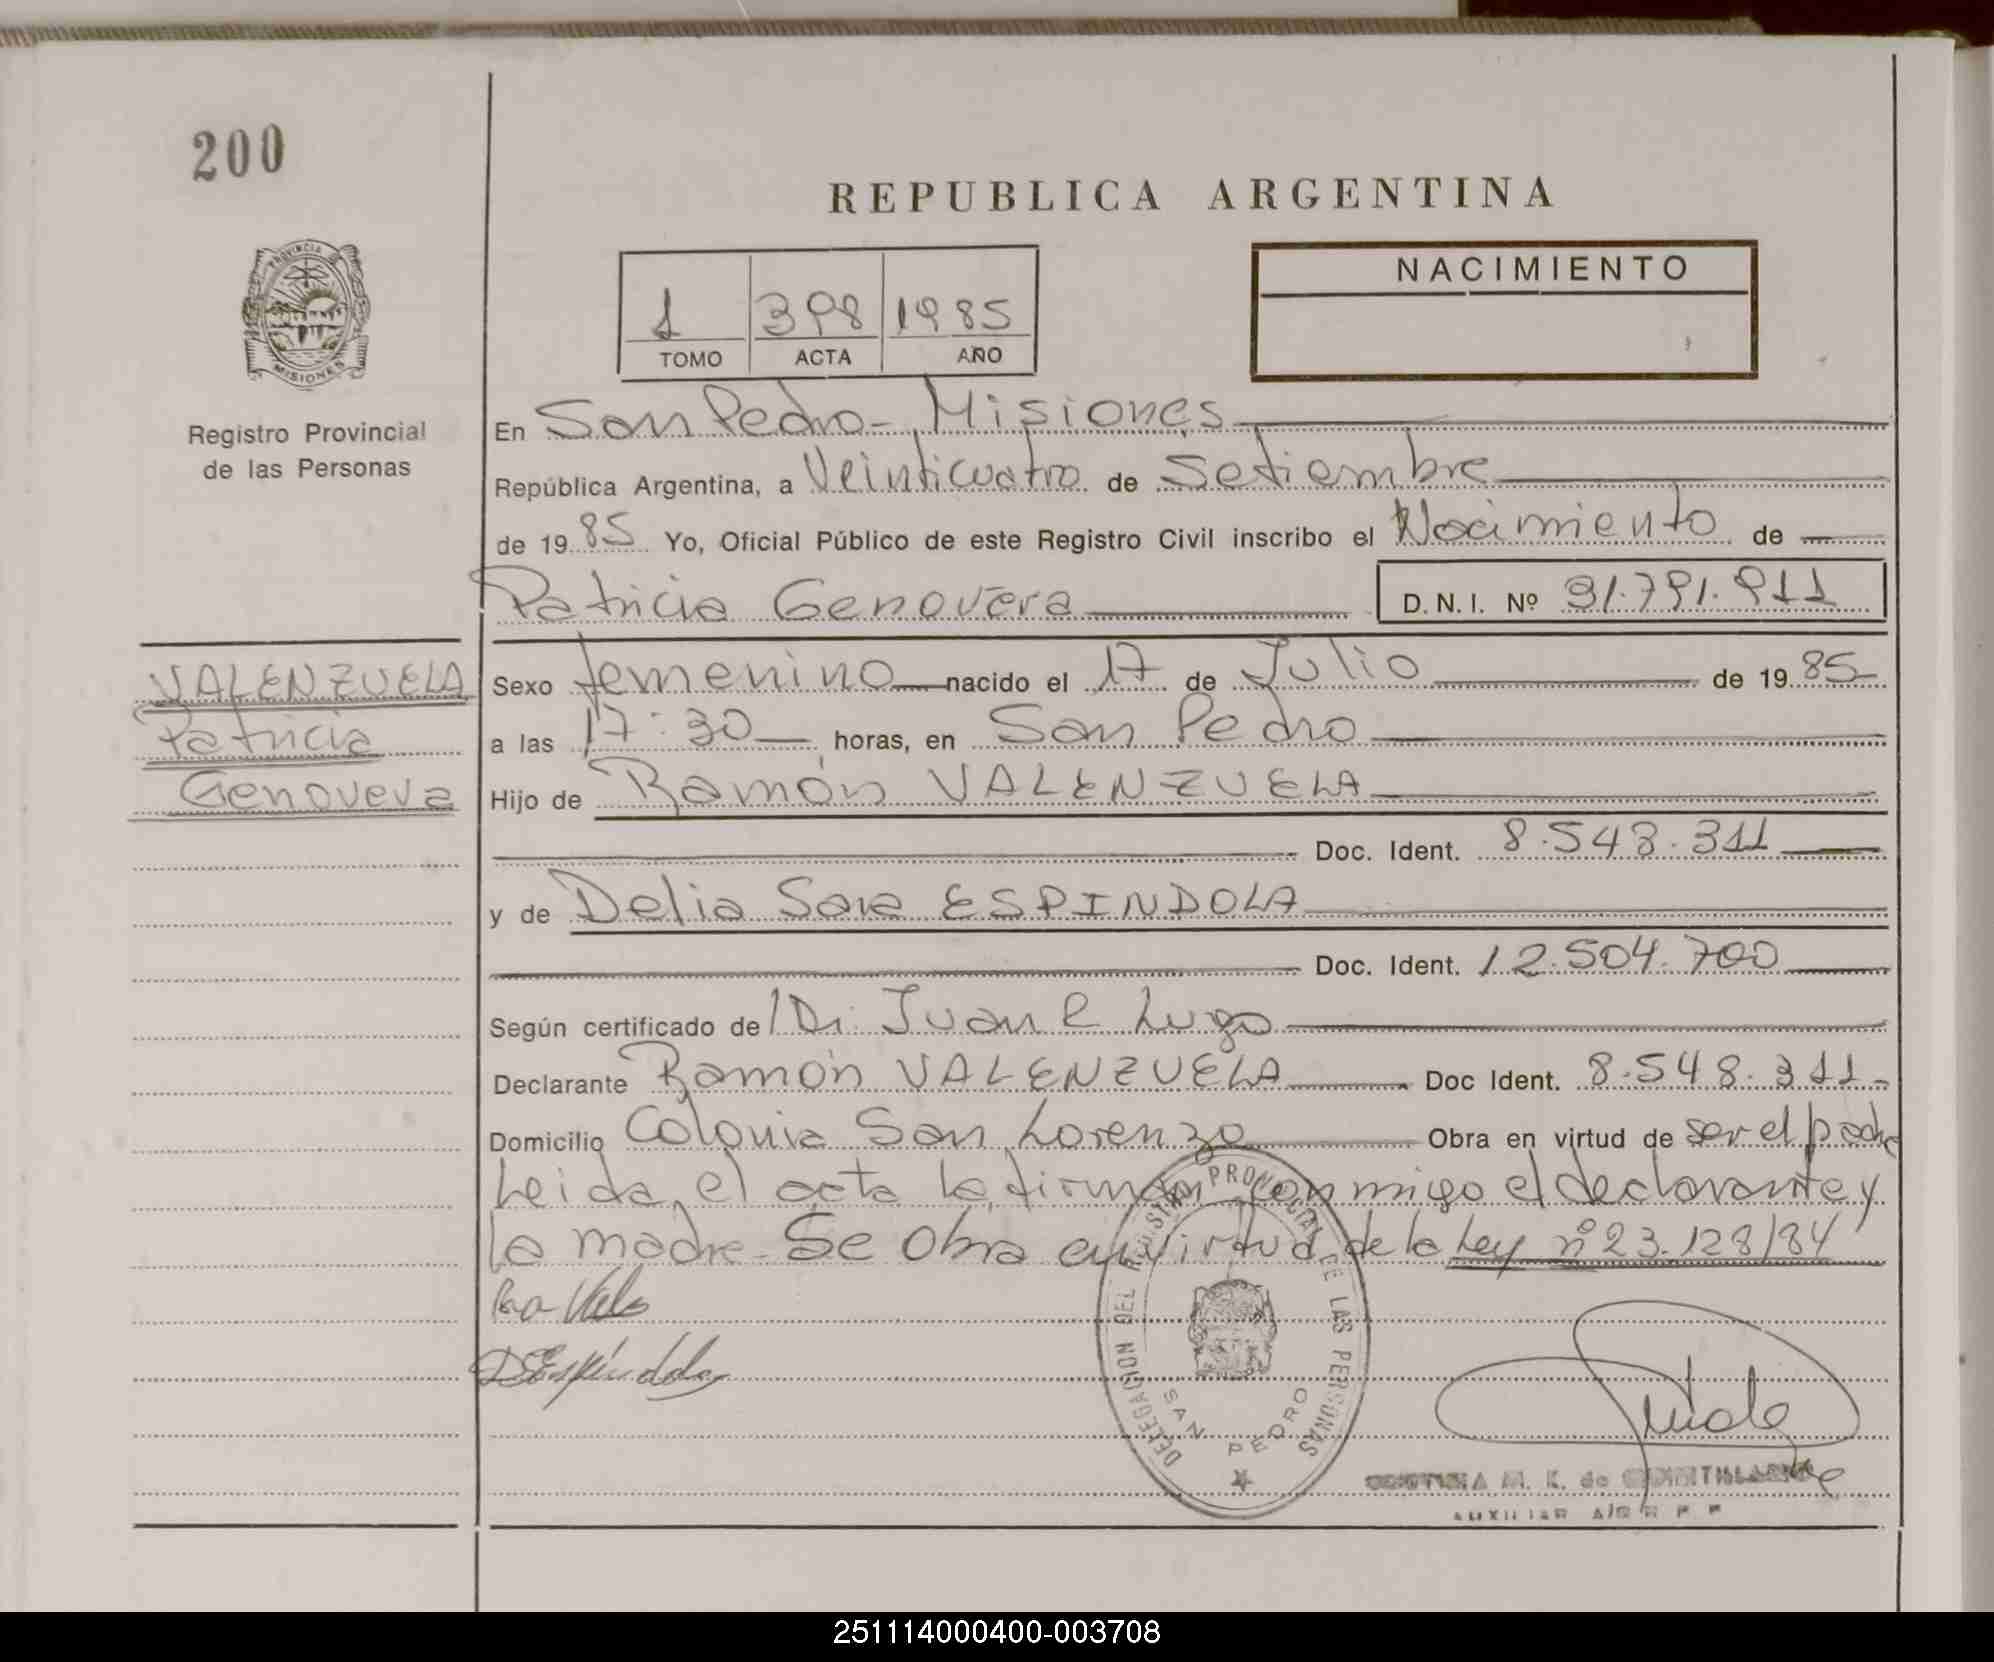 200
REPUBLICA ARGENTINA
PROVINCIA
MISIONES
Registro Provincial
de las Personas
1 398 1985
TOMO ACTA AÑO
NACIMIENTO
En San Pedro - Misiones
República Argentina, a Veinticuatro de Setiembre
de 19 85 Yo, Oficial Público de este Registro Civil inscribo el Nacimiento de
Patricia Genoveva
D.N.I. Nº 31.791.911
VALENZUELA
Patricia
Genoveva
Sexo femenino nacido el 17 de Julio de 19 85
a las 17:30 horas, en San Pedro
Hijo de Ramón VALENZUELA
Doc. Ident. 8.548.311
y de Delia Sara ESPINDOLA
Doc. Ident. 12.504.700
Según certificado de Dr. Juan R Lugo
Declarante Ramón VALENZUELA Doc Ident. 8.548.311-
Domicilio Colonia San Lorenzo Obra en virtud de ser el padre
Leida el acta la firman conmigo el declarante y
la madre - Se Obra en virtud de la Ley nº 23.128/84
DEspíndola
DELEGACION DEL REGISTRO PROVINCIAL DE LAS PERSONAS
SAN PEDRO
M. K. de
AUXILIAR
251114000400-003708